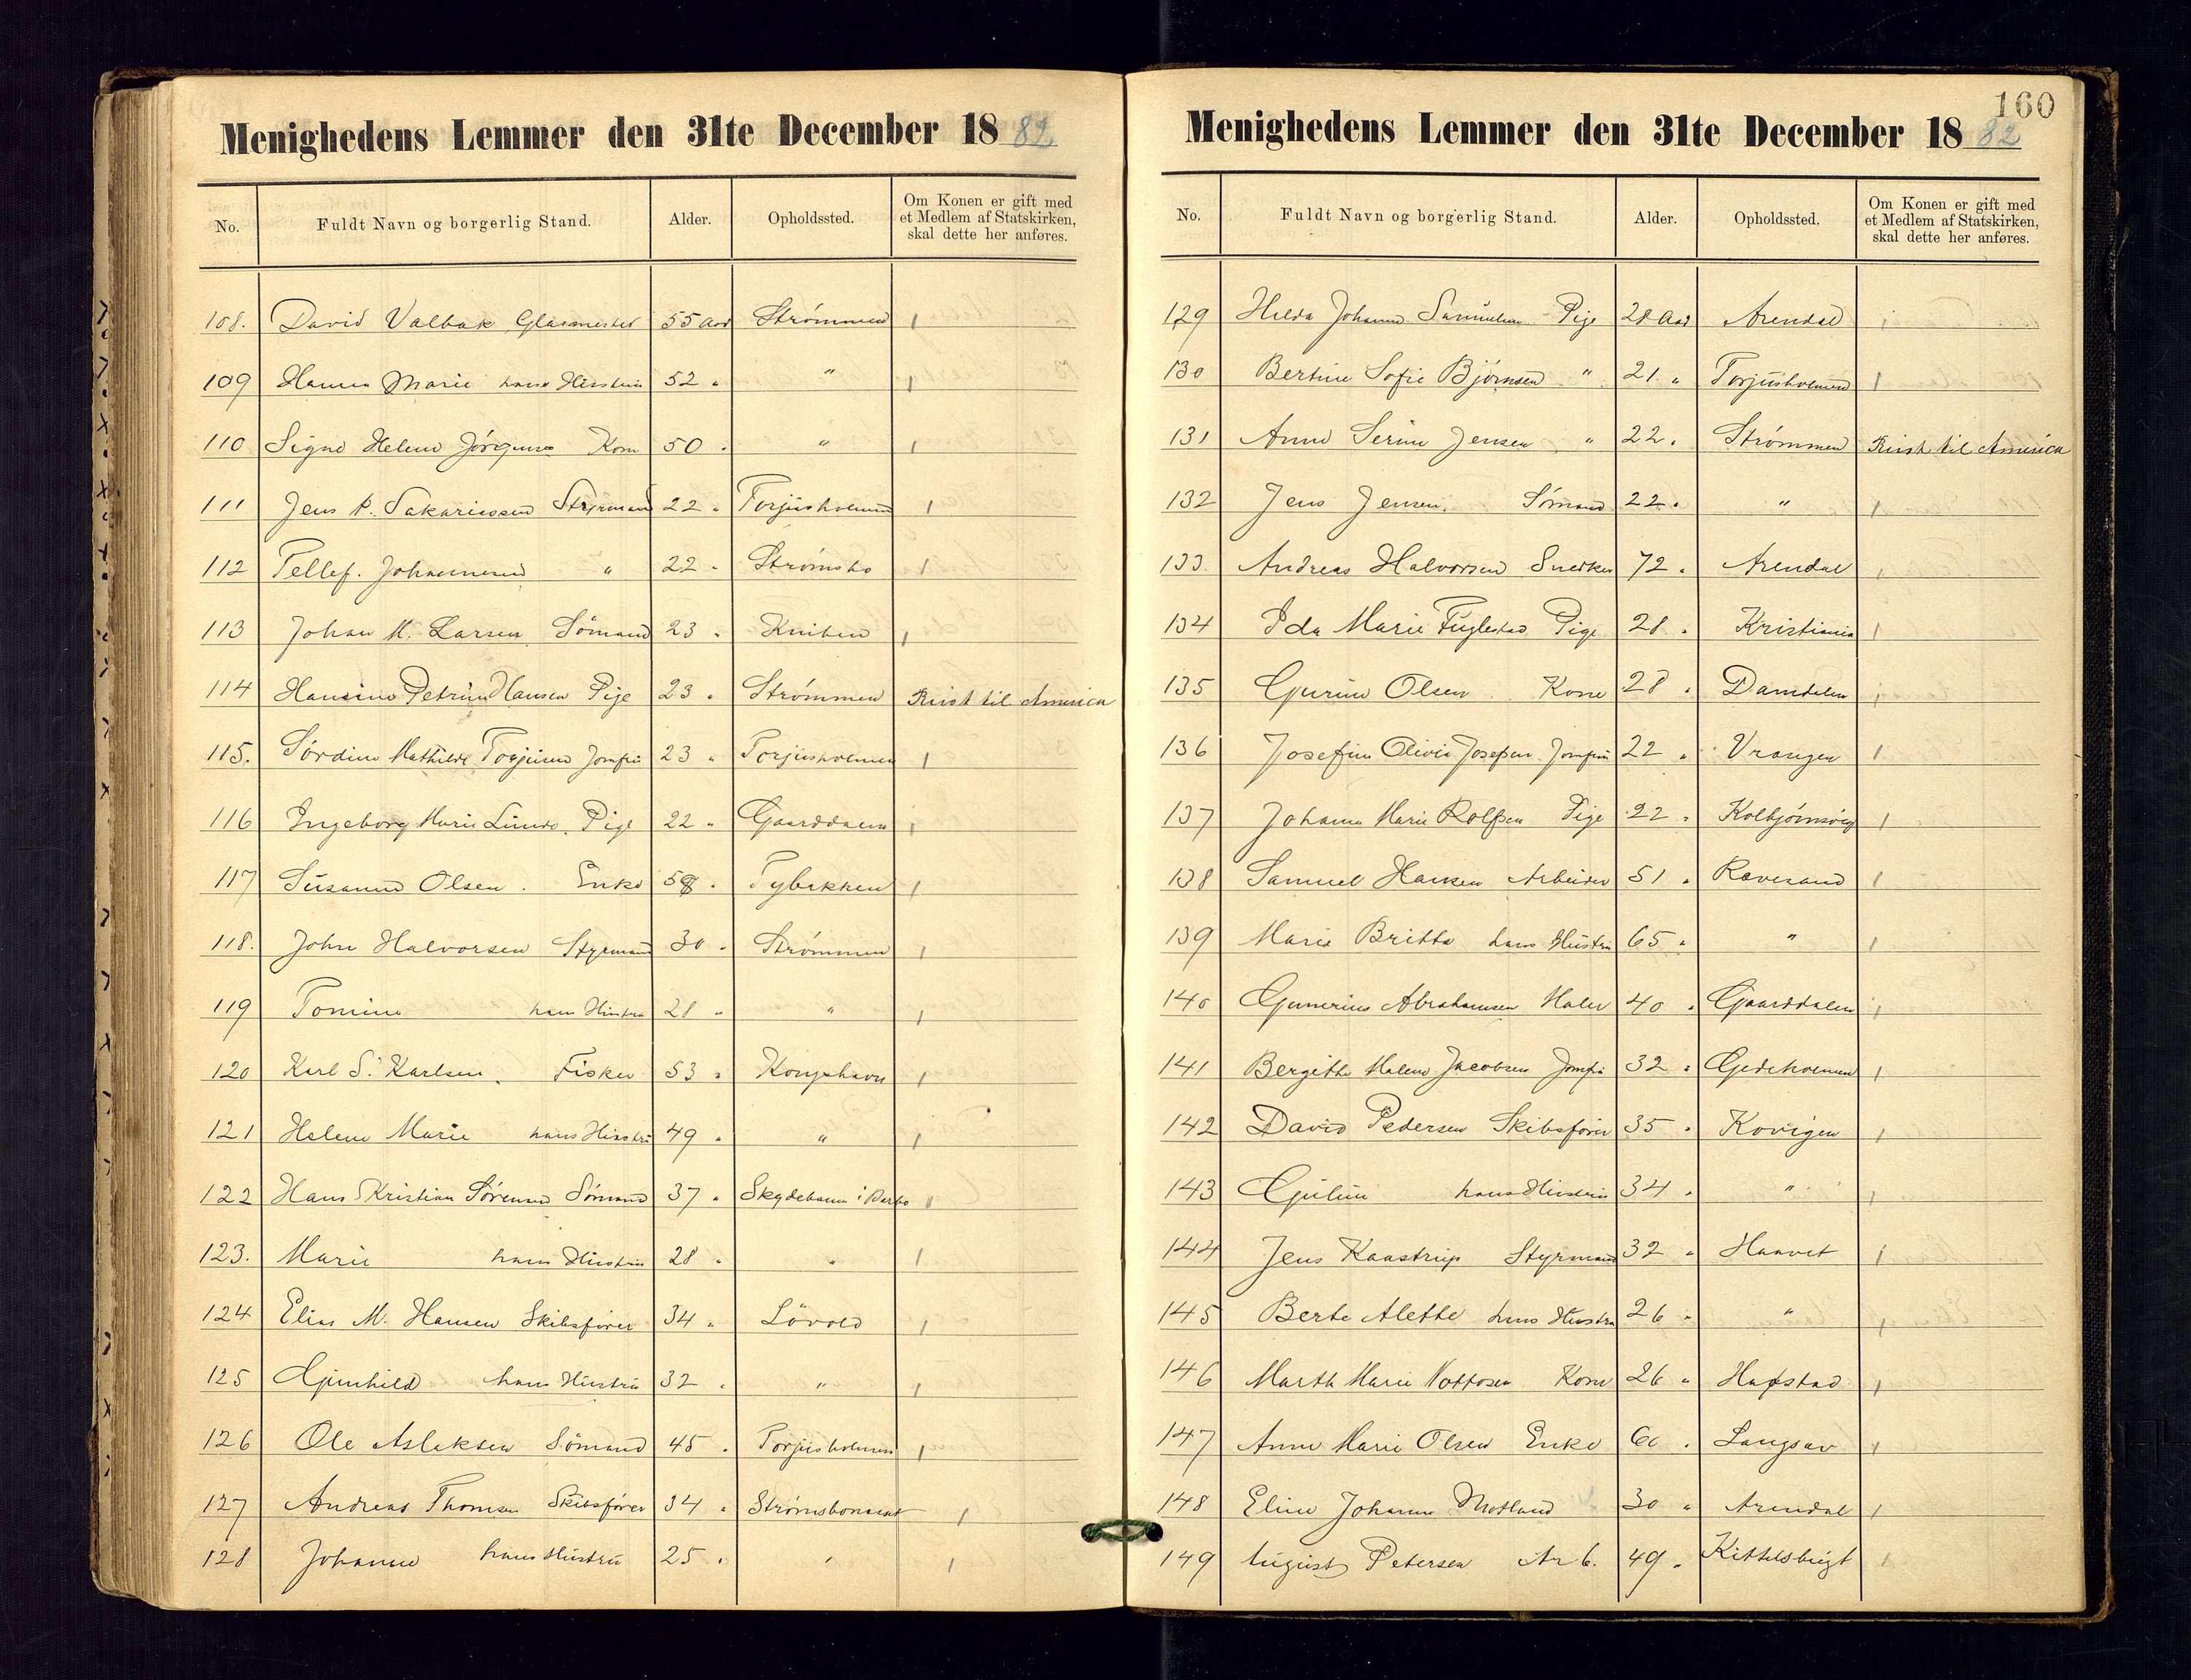 Menighedens Lemmer den 31te December 1882
No. Fuldt Navn og borgerlig Stand. Alder. Opholdssted. Om Konen er gift med et Medlem af Statskirken, skal dette her anføres.
108. David Valbak Glasmester 55 Aar Strømmen
109 Hanna Marie hans Hustru 52 " "
110 Signe Helene Jörgense Kone 50 " "
111 Jens P. Sakariessen Styrmand 22 " Torjusholmen
112 Tellef. Johannesen " 22 " Strømsbo
113 Johan M. Larsen Sömand 23 " Kniben
114 Hansine Petrine Hansen Pige 23 " Strømmen Reist til America
115. Sördine Mathilde Torjusen Jomfru 23 " Torjusholmen
116 Ingeborg Marie Lunde. Pige 22 " Gaarddalen
117 Susanne Olsen. Enke 58 " Tybakken
118. John Halvorsen Styrmand 30 " Strømmen
119 Tomine hans Hustru 28 " "
120 Karl S. Karlsen. Fisker 53 " Kongshavn
121 Helene Marie hans Hustru 49 " "
122 Hans Kristian Sörensen Sömand 37 " Skydebanen i Barbo
123. Marie hans Hustru 28 " "
124 Elias M. Hansen Skibsfører 34 " Lövold
125 Gunhild hans Hustru 32 " "
126 Ole Aslaksen Sömand 45 " Torjusholmen
127 Andreas Thomsen Skibsfører 34 " Strømsbo
128 Johanne hans Hustru 25 " "
160
Menighedens Lemmer den 31te December 1882
No. Fuldt Navn og borgerlig Stand. Alder. Opholdssted. Om Konen er gift med et Medlem af Statskirken, skal dette her anføres.
129 Hilda Johanne Samuelsen Pige 28 Aar Arendal
130 Bertine Sofie Björnsen " 21 " Torjusholmen
131 Anne Serine Jensen " 22 " Strømmen Reist til America
132 Jens Jensen. Sömand 22 " "
133. Andreas Halvorsen Snedker 72 " Arendal
134 Ida Marie Fuglestad Pige 28 " Kristiania
135 Gurine Olsen Kone 28 " Damdalen
136 Josefine Olivie Josefsen Jomfru 22 " Vrangen
137 Johanne Marie Rolfsen Pige 22 " Kolbjörnsvig
138 Samuel Hansen Arbeider 51 " Ravesand
139 Marie Britta hans Hustru 65 " "
140 Gunerius Abrahamsen Maler 40 " Gaarddalen
141 Bergithe Malene Jacobsen Jomfru 32 " Gjedeholmen
142 David Pedersen Skibsfører 35 " Kovigen
143 Guline hans Hustru 34 " "
144 Jens Kaastrup Styrmand 32 " Haavet
145 Berte Alette hans Hustru 26 " "
146 Marth Marie Nottosen Kone 26 " Hafstad
147 Anne Marie Olsen Enke 60 " Langsæv
148 Eline Johanne Motland 30 " Arendal
149 August Petersen Arb. 49 " Kittelsbugt